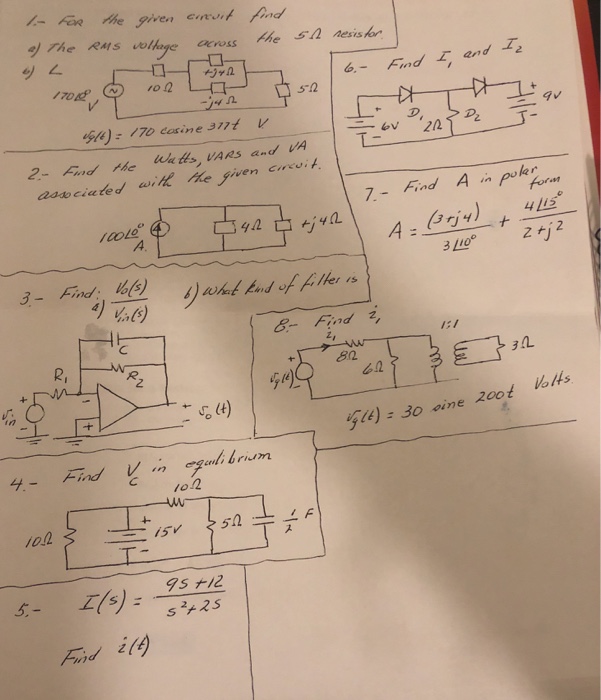 1.- FOR the given circuit find
a) The RMS voltage across the 5Ω resistor
b) L
170∠0° V
10Ω
+j4Ω
-j4Ω
5Ω
vg(t) = 170 cosine 377t V
2.- Find the Watts, VARS and VA
associated with the given circuit.
100∠0°
A.
4Ω
+j4Ω
3.- Find: a) Vo(s)/Vin(s)
b) What kind of filter is
C
R2
R1
Vin
+
-
vo(t)
4.- Find Vc in equilibrium
10Ω
10Ω
+
15V
-
5Ω
1/2 F
5.- I(s) = 9s+12 / s²+2s
Find i(t)
6.- Find I1 and I2
+
6V
-
D1
2Ω
D2
+
9V
-
7.- Find A in polar
form
A = (3+j4) / 3∠10° + 4∠15° / 2+j2
8.- Find i1
i1
8Ω
1:1
6Ω
3Ω
vg(t)
vg(t) = 30 sine 200t Volts.